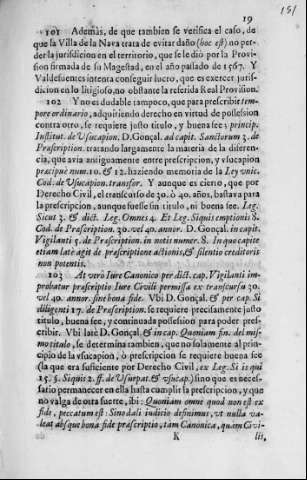 19
151
101 Ademàs, de que tambien se verifica el caso, de
que la Villa de la Nava trata de evitar daño (hoc est) no per-
der la jurisdicion en el territorio, que se le diò por la Provi-
sion firmada de su Magestad, en el año passado de 1567. Y
Valdefuentes intenta conseguir lucro, que es exercer juris-
dicion en lo litigioso, no obstante la referida Real Provision.
102 Y no es dudable tampoco, que para prescribir tem-
pore ordinario, adquiriendo derecho en virtud de possession
contra otro, se requiere justo titulo, y buena fee §. princip.
Institut. de Usucapion. D. Gonçal. ad capit. Sanctorum 3. de
Præscription. tratando largamente la materia de la diferen-
cia, que avia antiguamente entre prescripcion, y usucapion
præcipuè num. 10. & 12. haziendo memoria de la Ley unic.
Cod. de Usucapion. transfor. Y aunque es cierto, que por
Derecho Civil, el transcurso de 30. ò 40. años, bastava para
la prescripcion, aunque fuesse sin titulo, ni buena fee. Leg.
Sicut 3. & dict. Leg. Omnes 4. Et Leg. Siquis emptionis 8.
Cod. de Præscription. 30. vel 40. annor. D. Gonçal. in capit.
Vigilanti 5. de Præscription. in notis numer. 8. In que capite
etiam latè agit de præscriptione actionis, & silentio creditoris
non petentis.
103 At verò Iure Canonico per dict. cap. Vigilanti im-
probatur præscriptio Iure Civili permissa ex transcursu 30.
vel 40. annor. sine bona fide. Vbi D. Gonçal. & per cap. Si
diligenti 17. de Præscription. se requiere precisamente justo
titulo, buena fee, y continuada possession para poder pres-
cribir. Vbi latè D. Gonçal. & in cap. Quoniam fin. del mis-
mo titulo, se determina tambien, que no solamente al princi-
pio de la usucapion, ò prescripcion se requiere buena fee
(la que era suficiente por Derecho Civil, ex Leg. Si is qui
15. §. Siquis 2. ff. de Usurpat. & usucap.) sino que es neces-
sario permanecer en ella hasta cumplir la prescripcion, y que
no valga de otra suerte, ibi: Quoniam omne quod non est ex
fide, peccatum est: Sinodali iudicio definimus, ut nulla va-
leat absque bona fide præscriptio, tàm Canonica, quàm Civi-
K
lis,